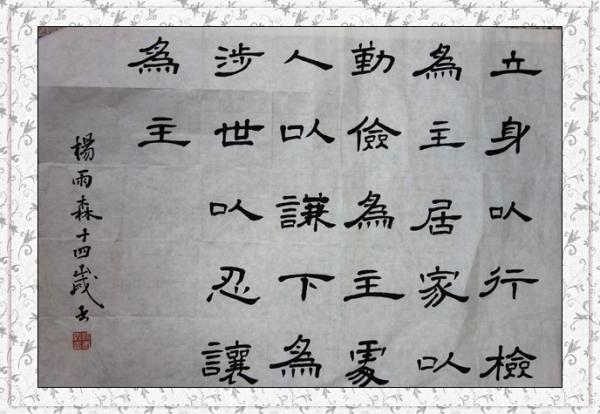 立身以行檢
為主居家以
勤儉為主處
人以謙下為
涉世以忍讓
為主
楊雨森十四歲書